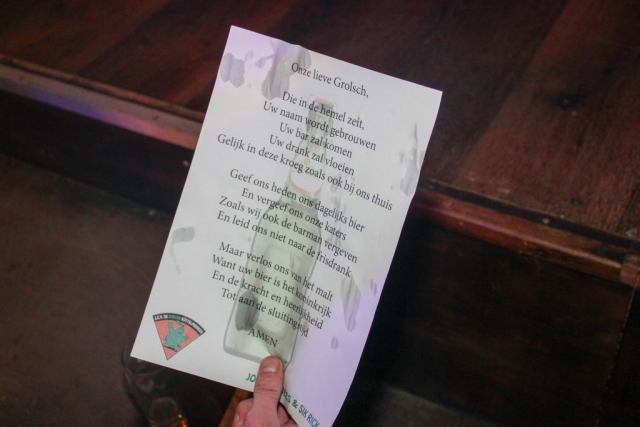 Onze lieve Grolsch,
Die in de hemel zeit,
Uw naam wordt gebrouwen
Uw bar zal komen
Uw drank zal vloeien
Gelijk in deze kroeg zoals ook bij ons thuis
Geef ons heden ons dagelijks bier
En vergeef ons onze katers
Zoals wij ook de barman vergeven
En leid ons niet naar de frisdrank
Maar verlos ons van het malt
Want uw bier is het koninkrijk
En de kracht en heerlijkheid
Tot aan de sluitingstijd
AMEN
JO
& SIR RICK